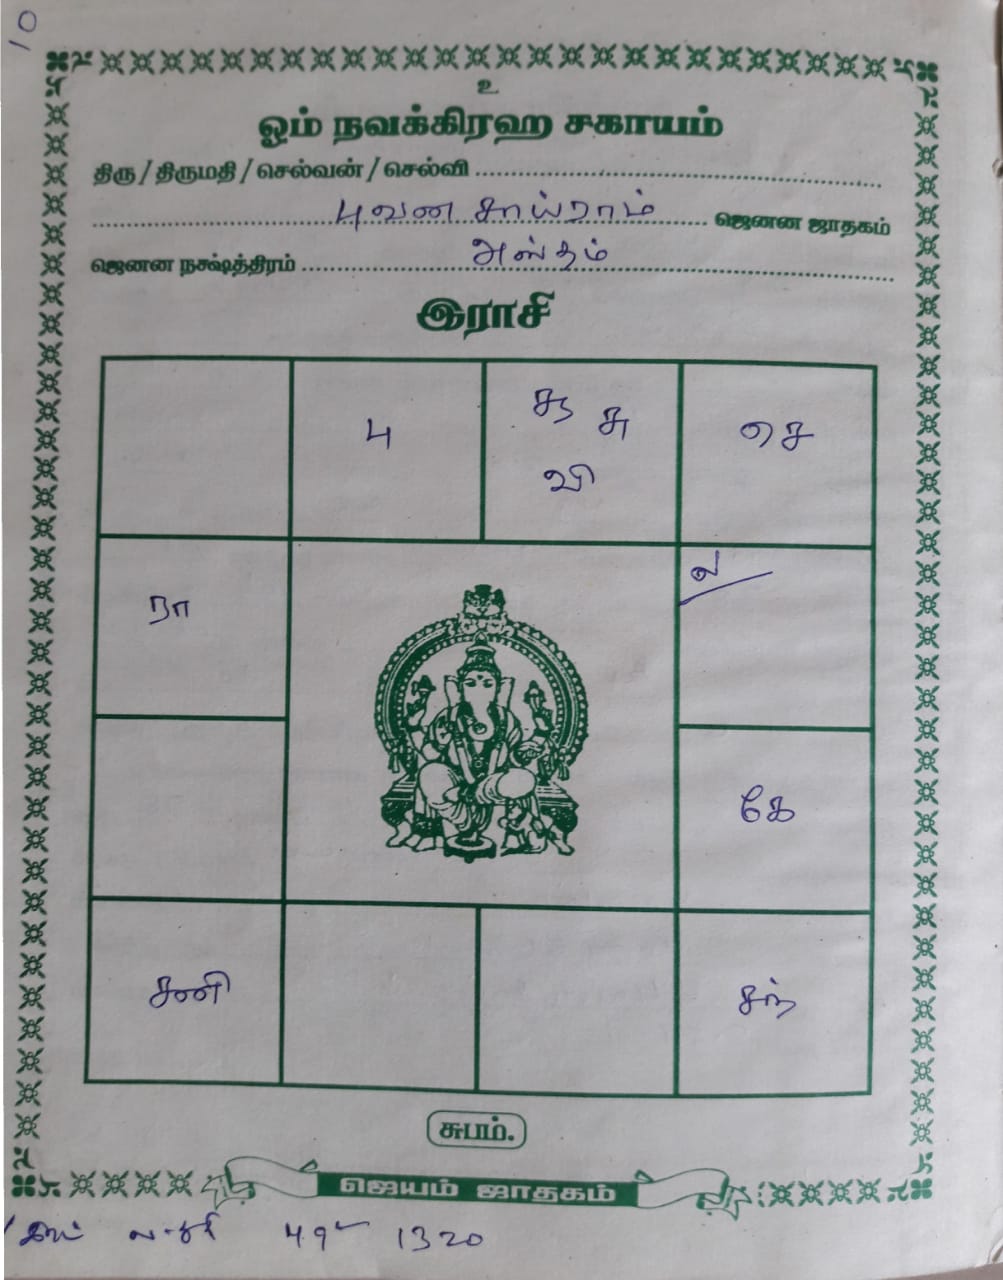 10
உ
ஓம் நவக்கிரஹ சகாயம்
திரு / திருமதி / செல்வன் / செல்வி
புவன சாய்ராம் ஜெனன ஜாதகம்
ஜெனன நக்ஷத்திரம் அஸ்தம்
இராசி
பு சூ சு செ
வி
ரா ல
கே
சனி சந்
சுபம்.
ஜெயம் ஜாதகம்
49 1320